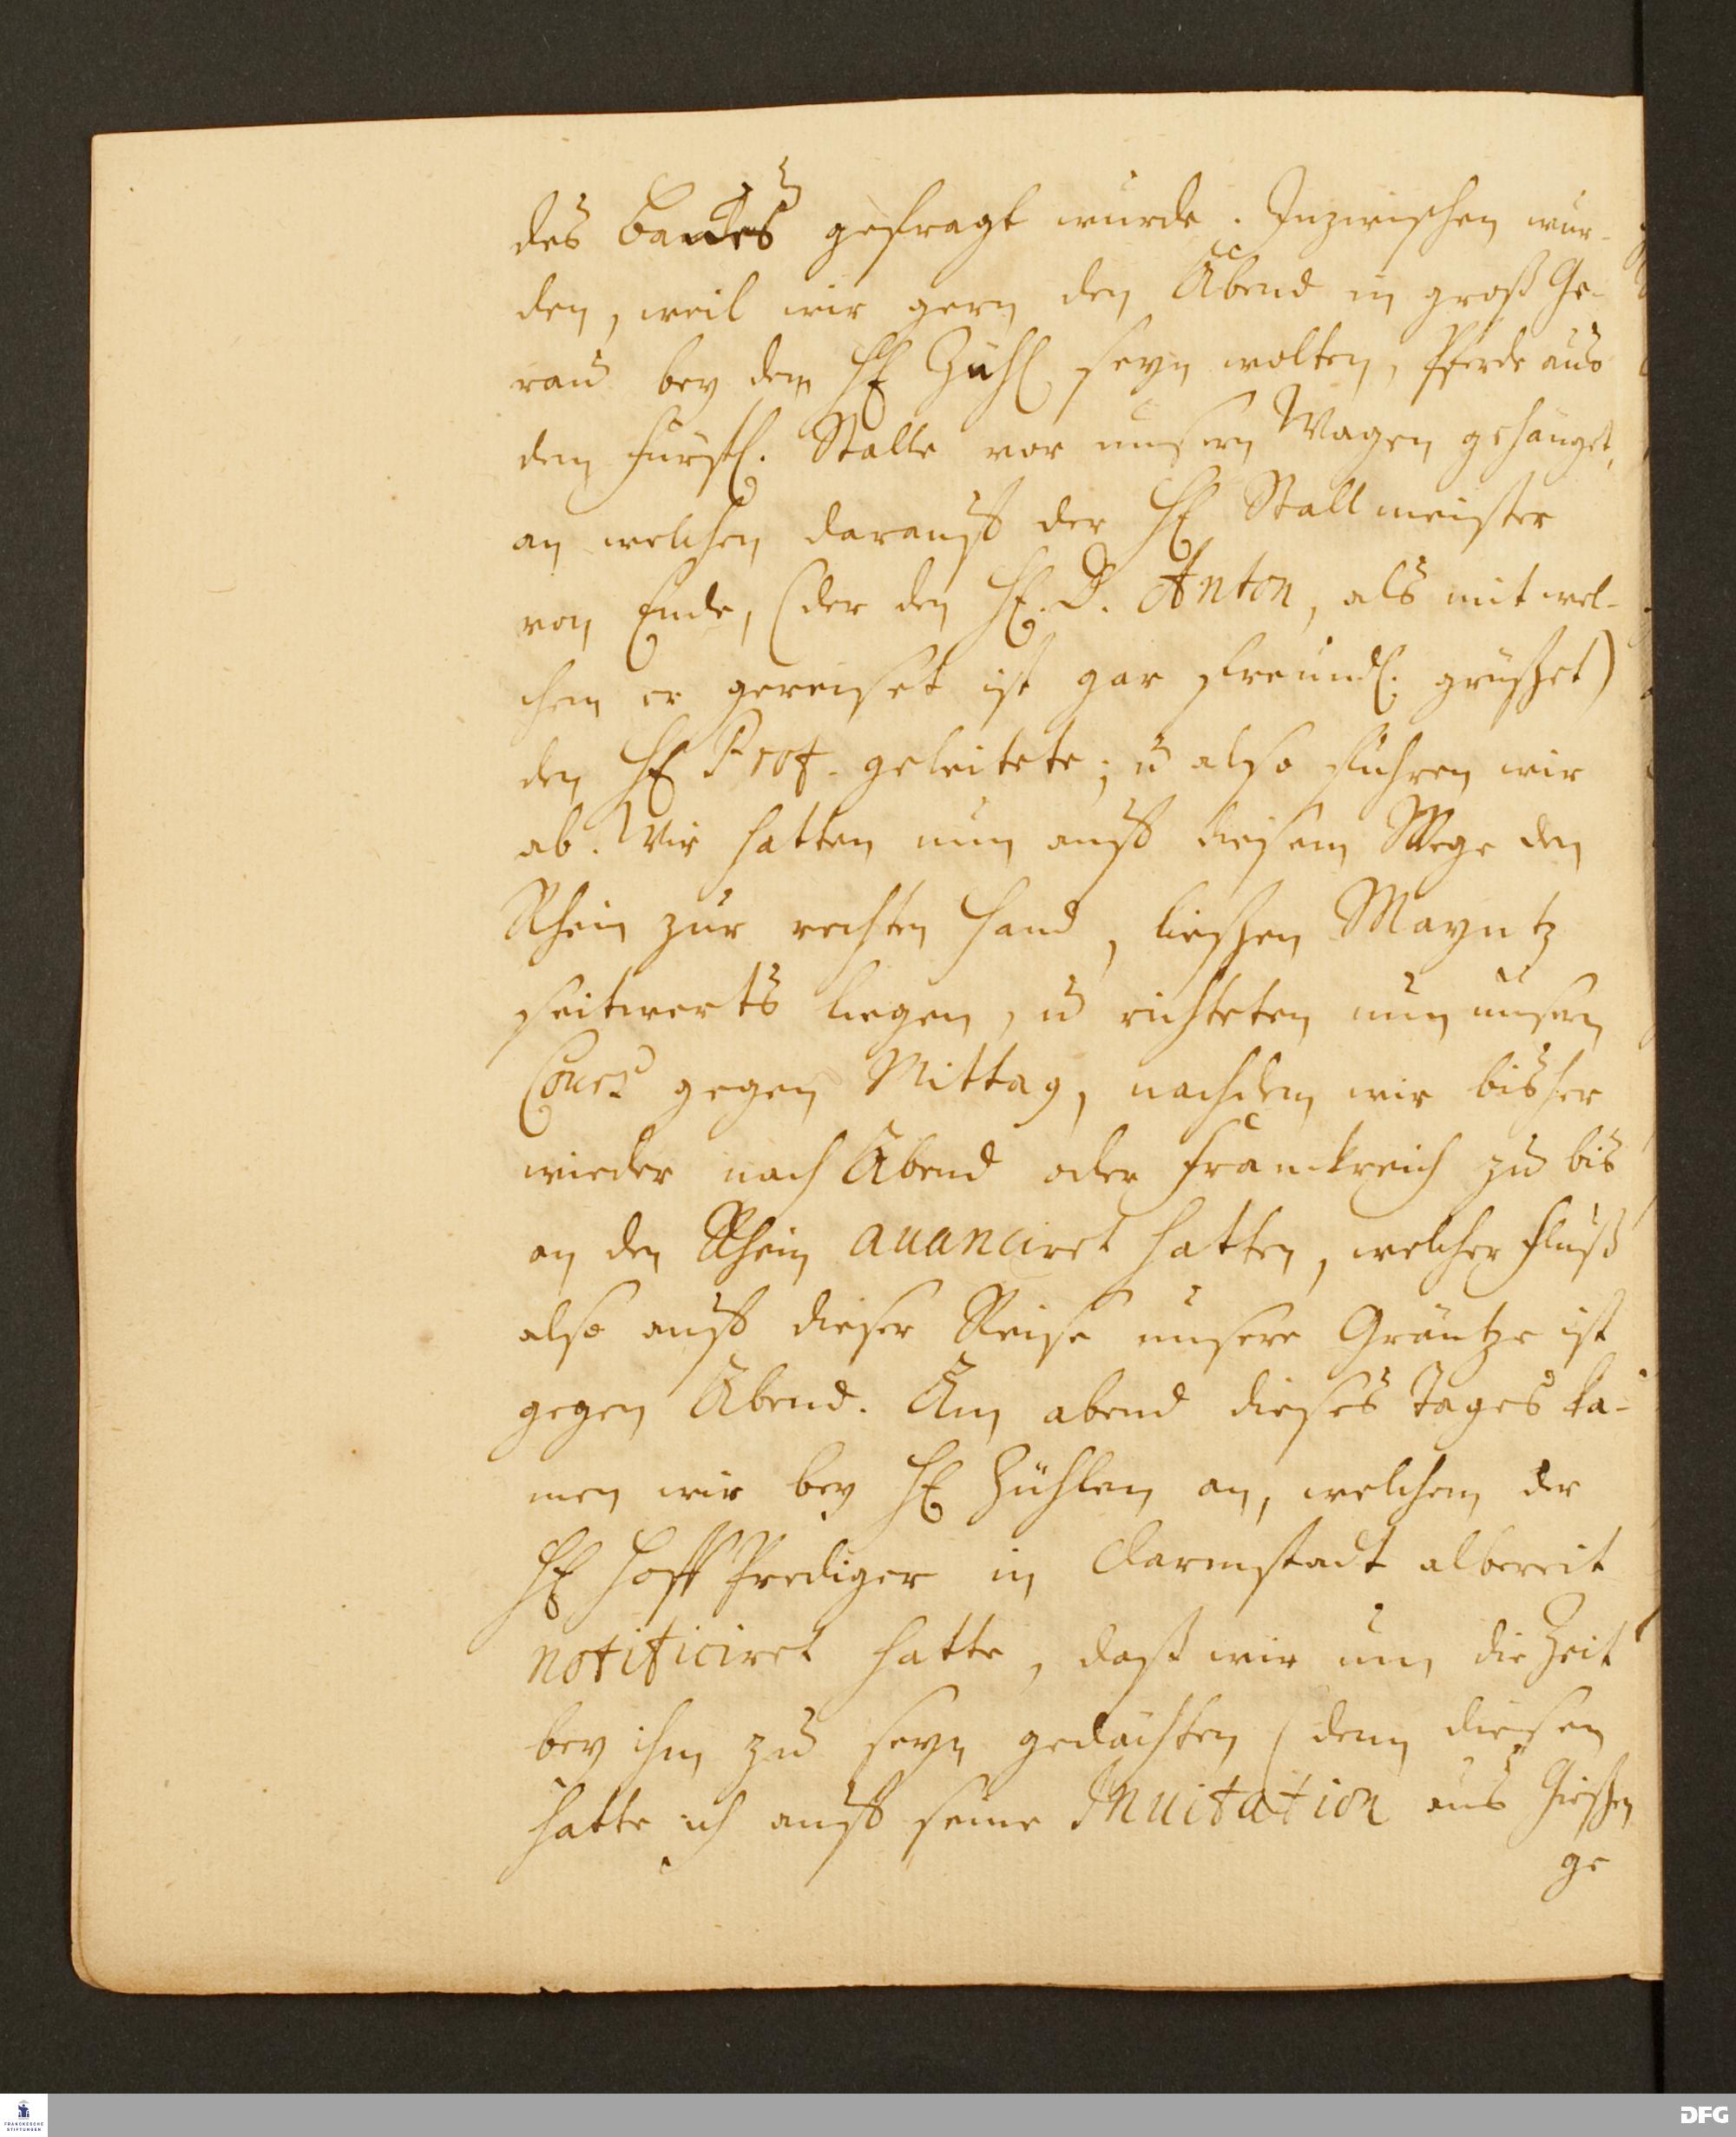 des Baues gefragt wurde. Inzwischen wur-
den, weil wir gern den Abend in groß Ge-
rau bey dem H Zühl seyn wolten, Pferde aus
dem Fürstl. Stalle vor unsern Wagen gehänget,
an welchen darauff der H Stallmeister
von Ende, (der den H. D. Anton, als mit wel-
chem er gereiset ist gar freundl. grüßet)
den H Prof. geleitete; u also fuhren wir
ab. Wir hatten nun auff diesem Wege den
Rhein zur rechten Hand, ließen Mayntz
seitwerts liegen, u richteten nun unsern
Cours gegen Mittag, nachdem wir bisher
wieder nach Abend oder Franckreich zu bis
an den Rhein avanciret hatten, welcher Fluß
also auff dieser Reise unsere Gräntze ist
gegen Abend. Am abend dieses Tages ka-
men wir bey H Zühlen an, welchem der
H HoffPrediger in Darmstadt albereit
notificiret hatte, daß wir um die Zeit
bey ihm zu seyn gedächten (denn diesen
hatte ich auff seine Invitation aus Gießen
ge
FRANCKESCHE
STIFTUNGEN
DFG